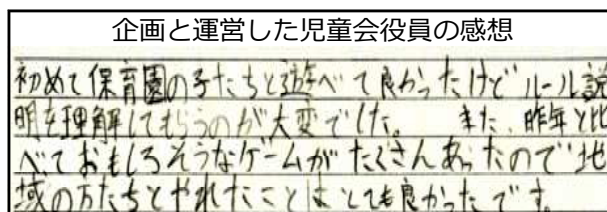 企画と運営した児童会役員の感想
初めて保育園の子たちと遊べて良かったけど ルール説
明を理解してもらうのが大変でした。 また、昨年と比
べておもしろそうなゲームがたくさんあったので地
域の方たちとやれたことは とても良かったです。